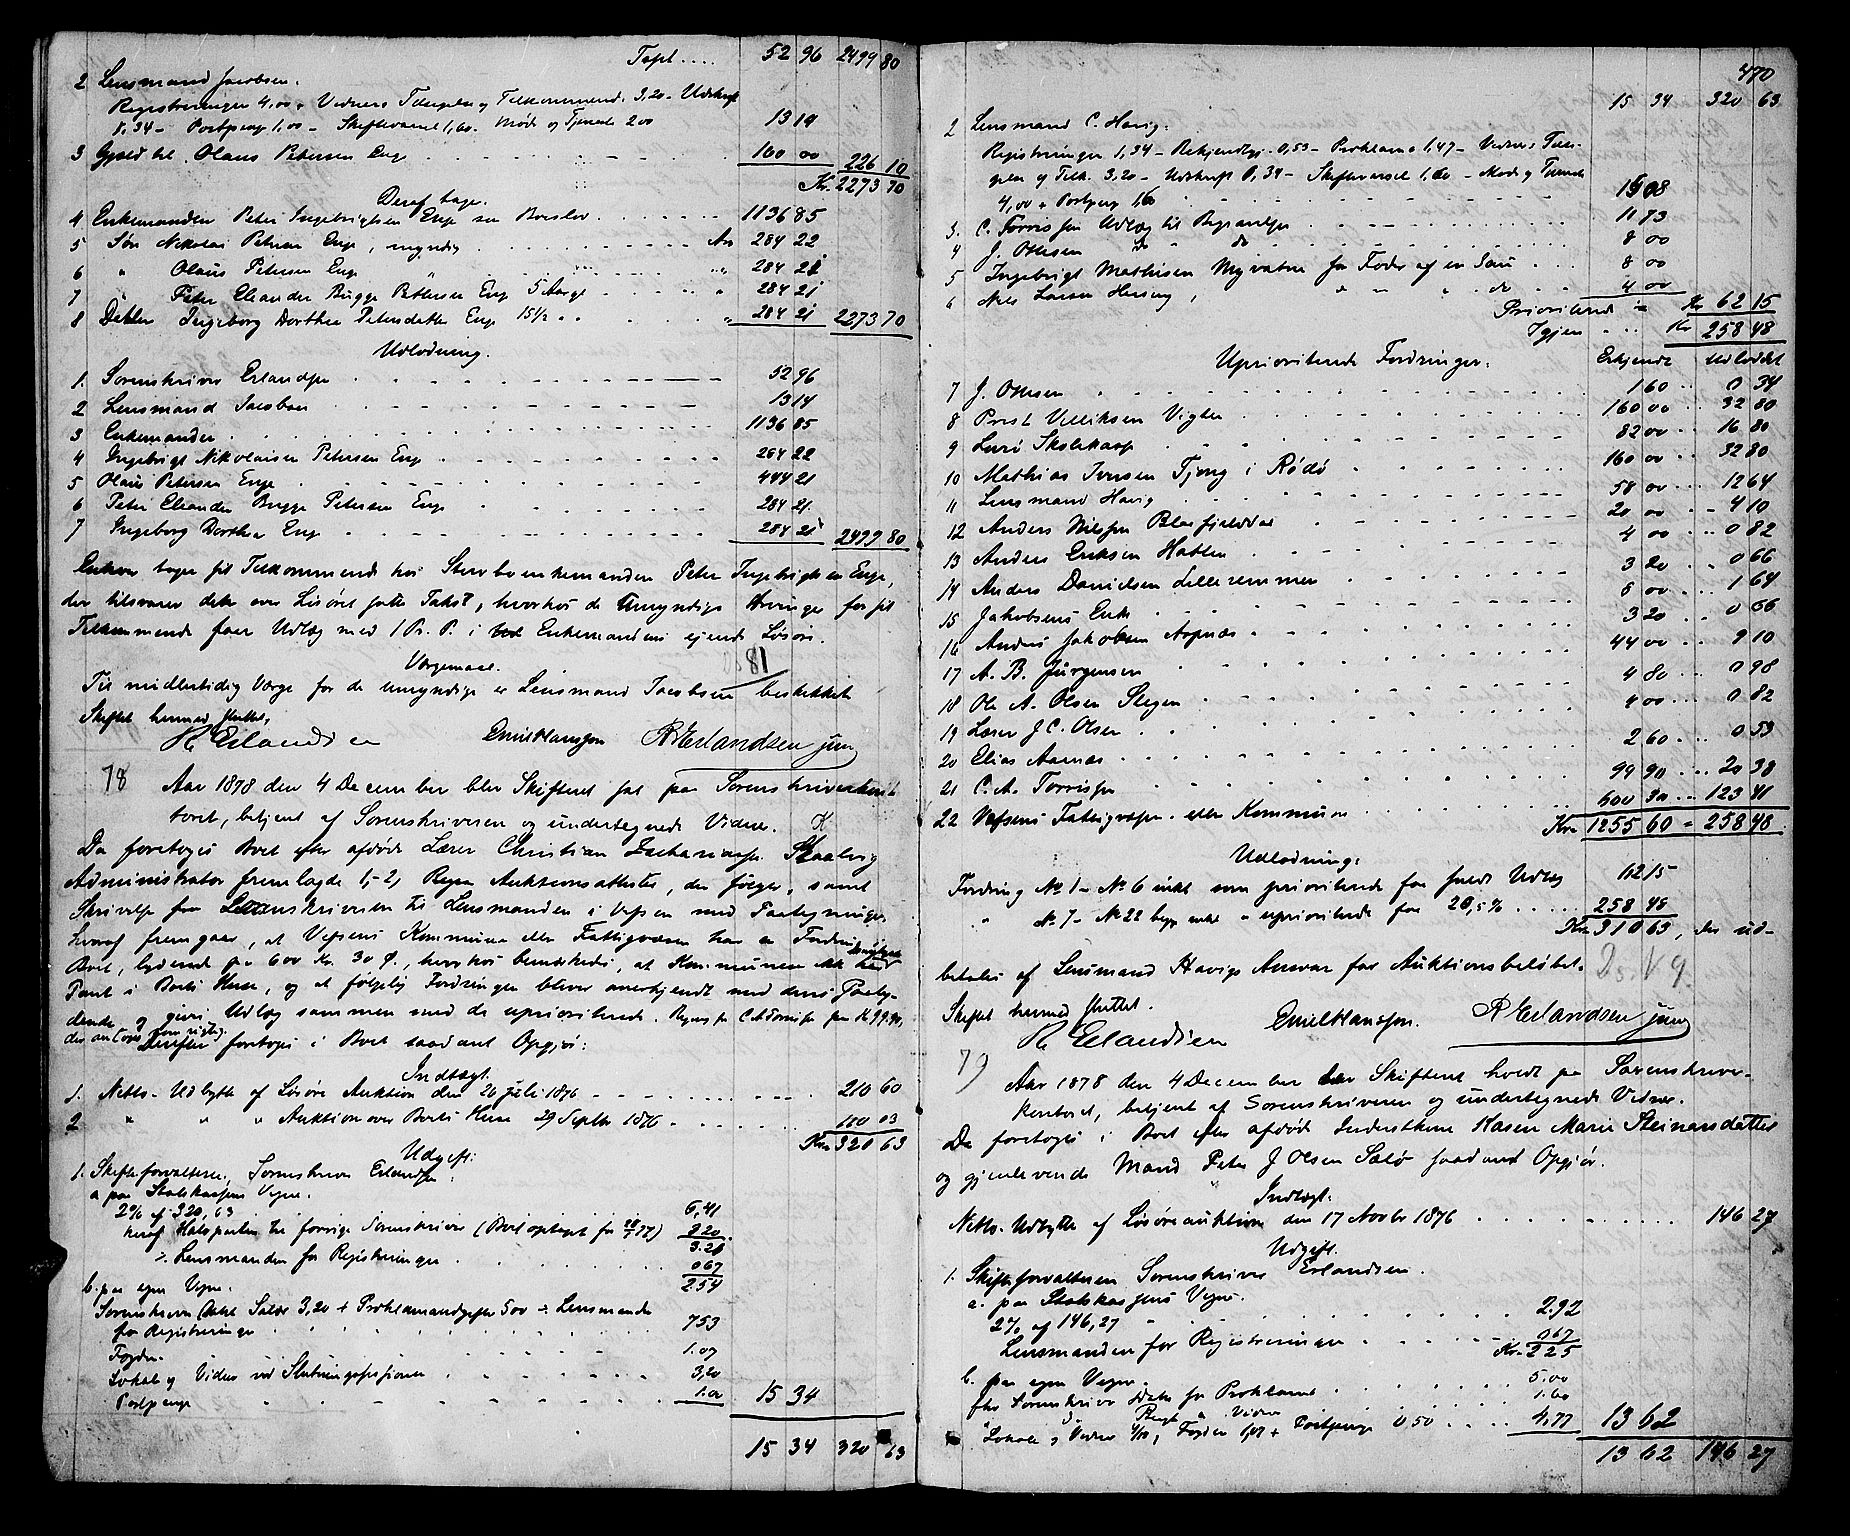 Tspt .... 52 96 2499 80
2 Lensmand Jacobsen.
Registreringen 4,00 + Vidners Tilsigelse og Tilkommende 3,20 – Udskrift
0,34 – Postpenge 1,00 – Skiftevarsel 1,60. Møde og Tjeneste 2 00 13 14
3 Gjæld til Olaus Petersen Enge 160 00 226 10
Kr. 2273 70
Deraf tager.
4 Enkemanden Peter Ingebrigtsen Enge sin Boeslod 1136 85
5 Søn Nikolai Petersen Enge, myndig Arv 284 22
6 " Olaus Petersen Enge " 284 21
7 " Peter Eleander Bugge Pettersen Enge 5 Aar gl. " 284 21
8 Datter Ingeborg Dorthea Petersdatter Enge 15 1/2 " " 284 21 2273 70
Udlodning.
1. Sorenskriver Erlandsen 52 96
2 Lensmand Jacobsen 13 14
3 Enkemanden 1136 85
4 Ingebrigt Nikolaisen Petersen Enge 284 22
5 Olaus Petersen Enge 444 21
6 Peter Eleander Bugge Petersen Enge 284 21.
7 Ingeborg Dorthea Enge 284 21 2499 80
Enhver tager sit Tilkommende hos Stervboenkemanden Peter Ingebrigtsen Enge,
der tilsvarer dette over Løsøret efter Takst, hvorhos de umyndige Arvinger for sit
Tilkommende faar Udlæg med 1 Pr. P. i Enkemandens eiende Løsøre.
Værgemaal. 81
Til midlertidig Værge for de umyndige er Lensmand Jacobsen beskikket
Skiftet hermed sluttet,
R Erlandsen Emil Hansson R Erlandsen jun
78 Aar 1878 den 4 December blev Skifteret sat paa Sorenskriverkon-
toret, betjent af Sorenskriveren og undertegnede Vidner.
Da foretoges Boet efter afdøde Lærer Christian Zachariassen Skaalvig
Administrator fremlagde 1,- 2, Regn Auktionsattester, der følger, samt
Skrivelse fra Sorenskriveren til Lensmanden i Vefsen med Paategninger,
hvoraf fremgaar, at Vefsens Kommune eller Fattigvæsen har en Fordring
Boet, lydende paa 600 Kr. 30 Ø., hvorhos bemærkedes, at Kommunen ikke har
Pant i Boets Huse, og at følgelig Fordringen bliver anerkjendt med dens Paaly-
dende og gives Udlæg sammen med de uprioriterede. Regning fra C. A. Torrissen paa Kr 99.90,
Derefter foretoges i Boet saadant Opgjør:
Indtægt.
1. Netto-Udbytte af Løsøre Auktion den 26 Juli 1876 210 60
2 " " " Auktion over Boets Huse 29 Septbr 1876 110 03
Kr. 320 63
Udgift:
1. Skifteforvalteren, Sorenskriver Erlandsen.
a paa Statskassens Vegne.
2% af 320,63 6,41
heraf Halvparten til forrige Sorenskriver 3 20
3.21
÷ Lensmanden for Registreringen 0 67
2.54
b. paa egen Vegne.
Sorenskriveren 3,20 + Proklamaudgifter 5 00 ÷ Lensmanden
for Registreringen 7 53
Fogden 1.07
Lokale og Vidner ved Slutningssessionen 3,20
Postpenge 1.00 15 34
15 34 320 63
470
15 34 320 63
2 Lensmand C. Havig:
Registreringen 1,34 – Bekjendtgj. 0,53 – Proklama 1,47 – Vidners Tilsi-
gelse og Tilk. 3,20 – Udskrift 0,34 – Skiftevarsel 1,60 – Møde og Tjeneste
4,00 + Postpenge 1,60 15 08
3. C. Torrissen Udlæg til Begravelsen 11 73
4 J. Ottesen do do 8 00
5 Ingebrigt Mathisen Myvatne for Foder af en Sau 8 00
6 Nils Larsen Hensvig, do " " do 4 00
Prioriterede = Kr 62 15
Igjen Kr 258 48
Uprioriterede Fordringer: Erkjendte Udloddet
7 J. Ottesen 1 60 0 34
8 Prest Ulliksen Vigten 160 00 32 80
9 Lurø Skolekasse 82 00 16 80
10 Mathias Iversen Tjong i Rødø 160 00 32 80
11 Lensmand Havig 58 00 12 64
12 Anders Nilsen Blaafjelddal 20 00 4 10
13 Anders Eriksen Hatten 4 00 0 82
14 Anders Danielsen Lilleremmen 3 20 0 66
15 Jakobsens Enke 8 00 1 64
16 Anders Jakobsen Aspnæs 3 20 0 66
17 A. B. Jürgensen 44 00 9 10
18 Ole A. Olsen Stegen 4 80 0 98
19 Lærer J C. Olsen 4 00 0 82
20 Elias Aarnæs 2 60 0 53
21 C. A. Torrissen 99 90 20 38
22 Vefsens Fattigvæsen eller Kommune 600 30 123 41
Kr. 1255 60 = 258 48
Udlodning:
Fordring No 1 – No 6 inkl som prioriterede faar fuldt Udlæg 62 15
" No 7 – No 22 begge inkl " uprioriterede faar 20,5% 258 48
Kr. 310 63, der ud-
betales af Lensmand Havigs Ansvar for Auktionsbeløbet.
Skiftet hermed sluttet.
R Erlandsen Emil Hansson. R Erlandsen jun
79 Aar 1878 den 4 December blev Skifteret holdt paa Sorenskriver-
kontoret, betjent af Sorenskriveren og undertegnede Vidner.
Da foretoges i Boet efter afdøde Inderstkone Hasen Marie Steinarsdatter
og gjenlevende Mand Peter J Olsen Salø saadant Opgjør.
Indtægt:
Netto-Udbytte af Løsøreauktion den 17 Novbr 1876 146 27
Udgift.
1. Skifteforvalteren Sorenskriver Erlandsen.
a. paa Statskassens Vegne.
2% af 146,27 2.92
Lensmanden for Registreringen 0 67
Kr. 2 25
b. paa egen Vegne.
Sorenskriver for Proklama 5.00
1.60
Lokale og Vidner , Fogden 1,07 + Postpenge 0,50 4,77 13 62
13 62 146 27